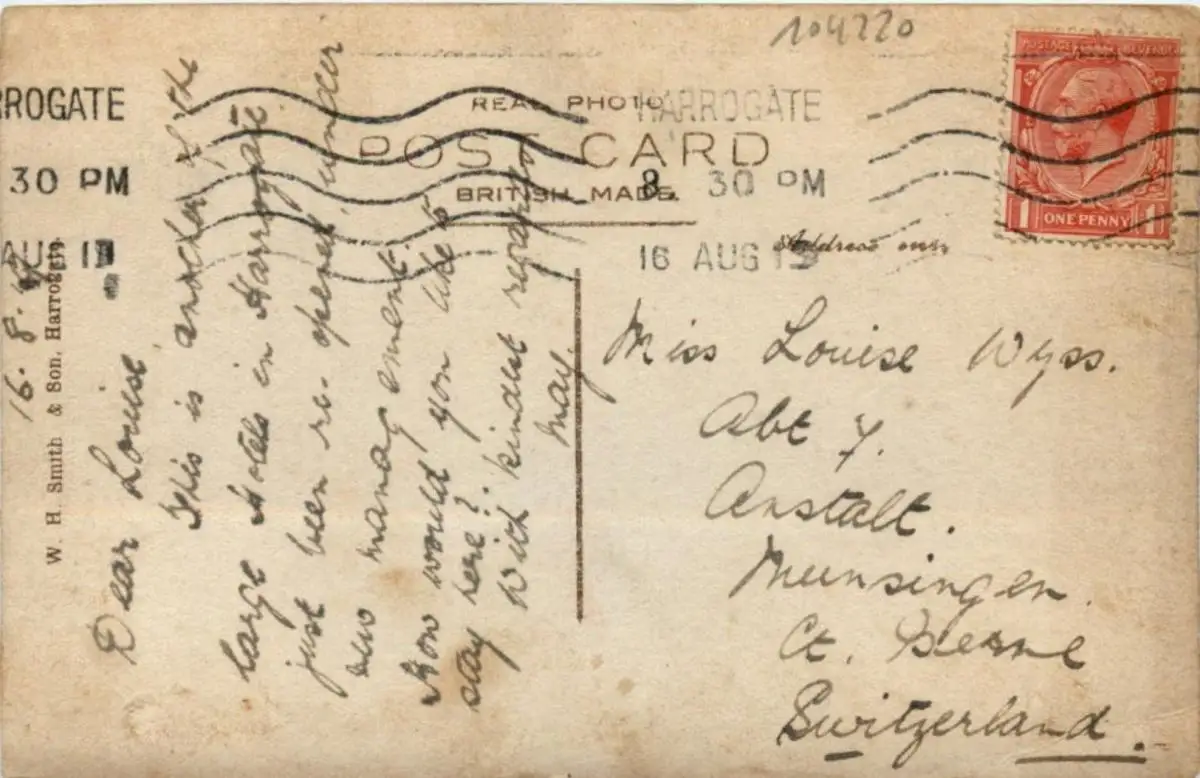 104220
HARROGATE
30 PM
AUG
HARROGATE
8 30 PM
16 AUG
POSTAGE REVENUE
1 ONE PENNY 1
REAL PHOTO
POST CARD
BRITISH MADE.
Address only
W. H. Smith & Son, Harrogate.
16. 8.
Dear Louise.
This is another of the
large Hotels in Harrogate
just been re-opened under
new management.
How would you like to
stay here?
With kindest regards
May.
Miss Louise Wyss.
Abt 7.
Anstalt.
Munsingen.
Ct. Berne
Switzerland.